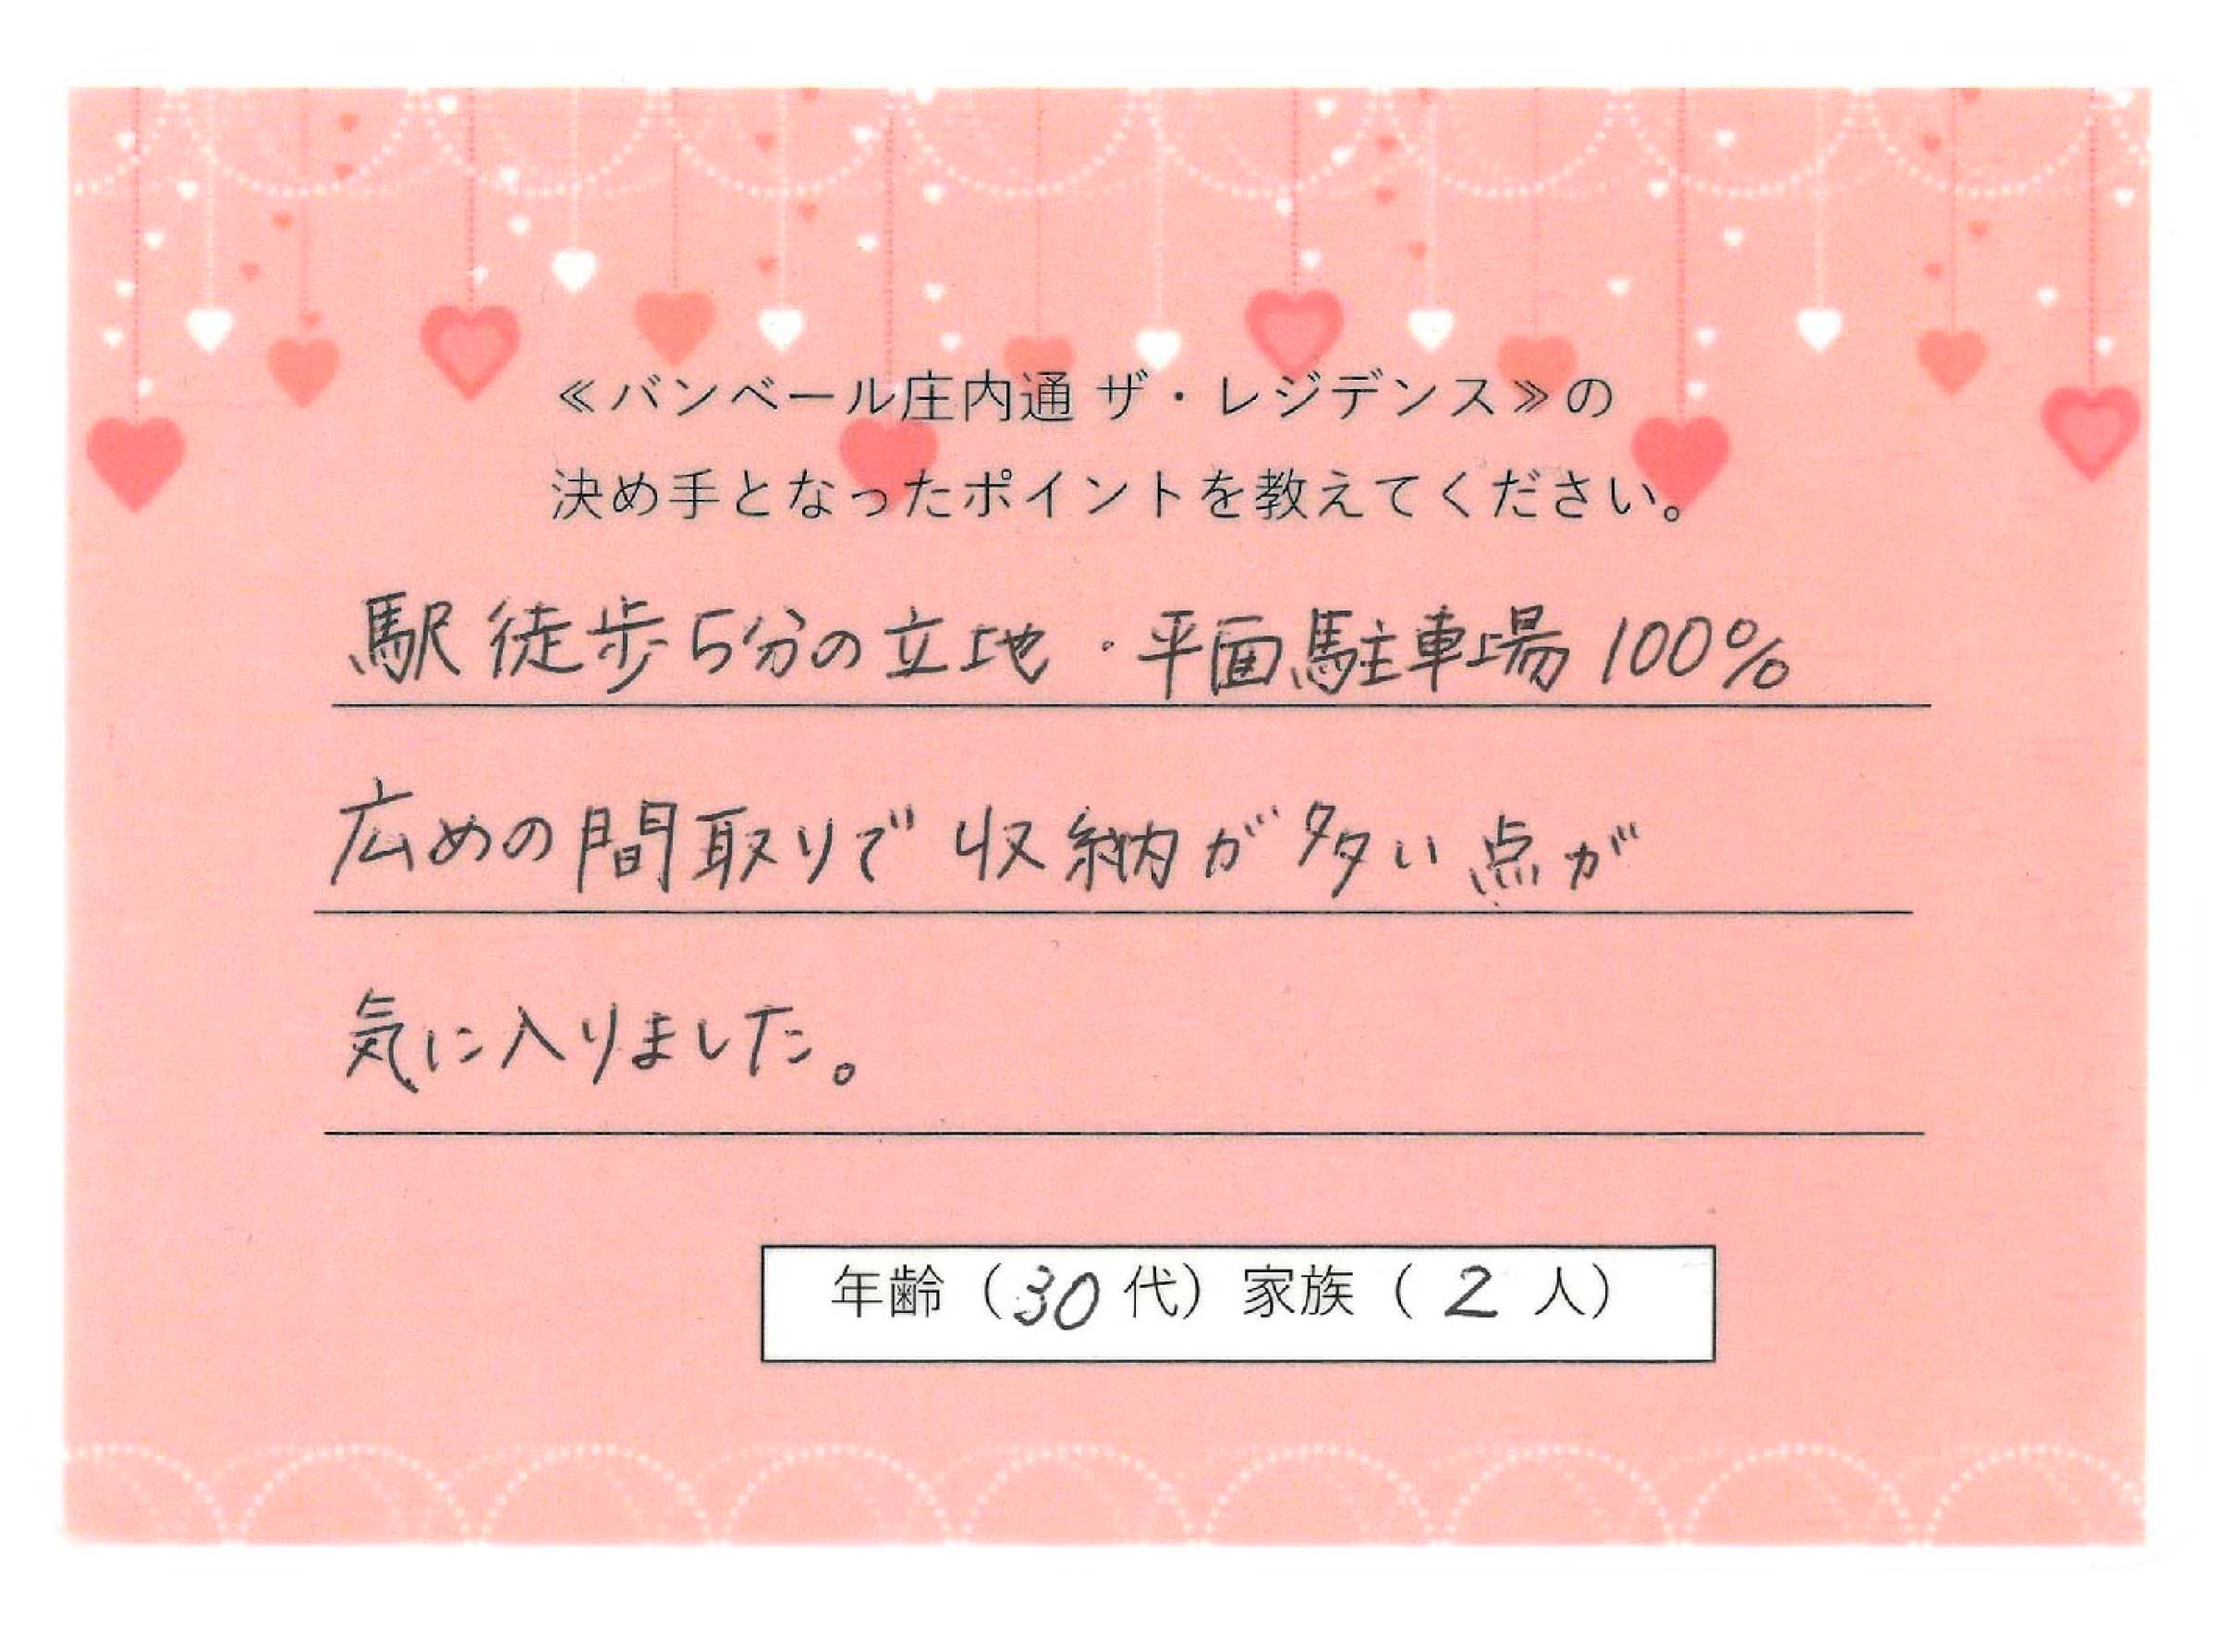 ≪バンベール庄内通 ザ・レジデンス≫の
決め手となったポイントを教えてください。
駅徒歩5分の立地・平面駐車場100%
広めの間取りで収納が多い点が
気に入りました。
年齢（30代）家族（2人）